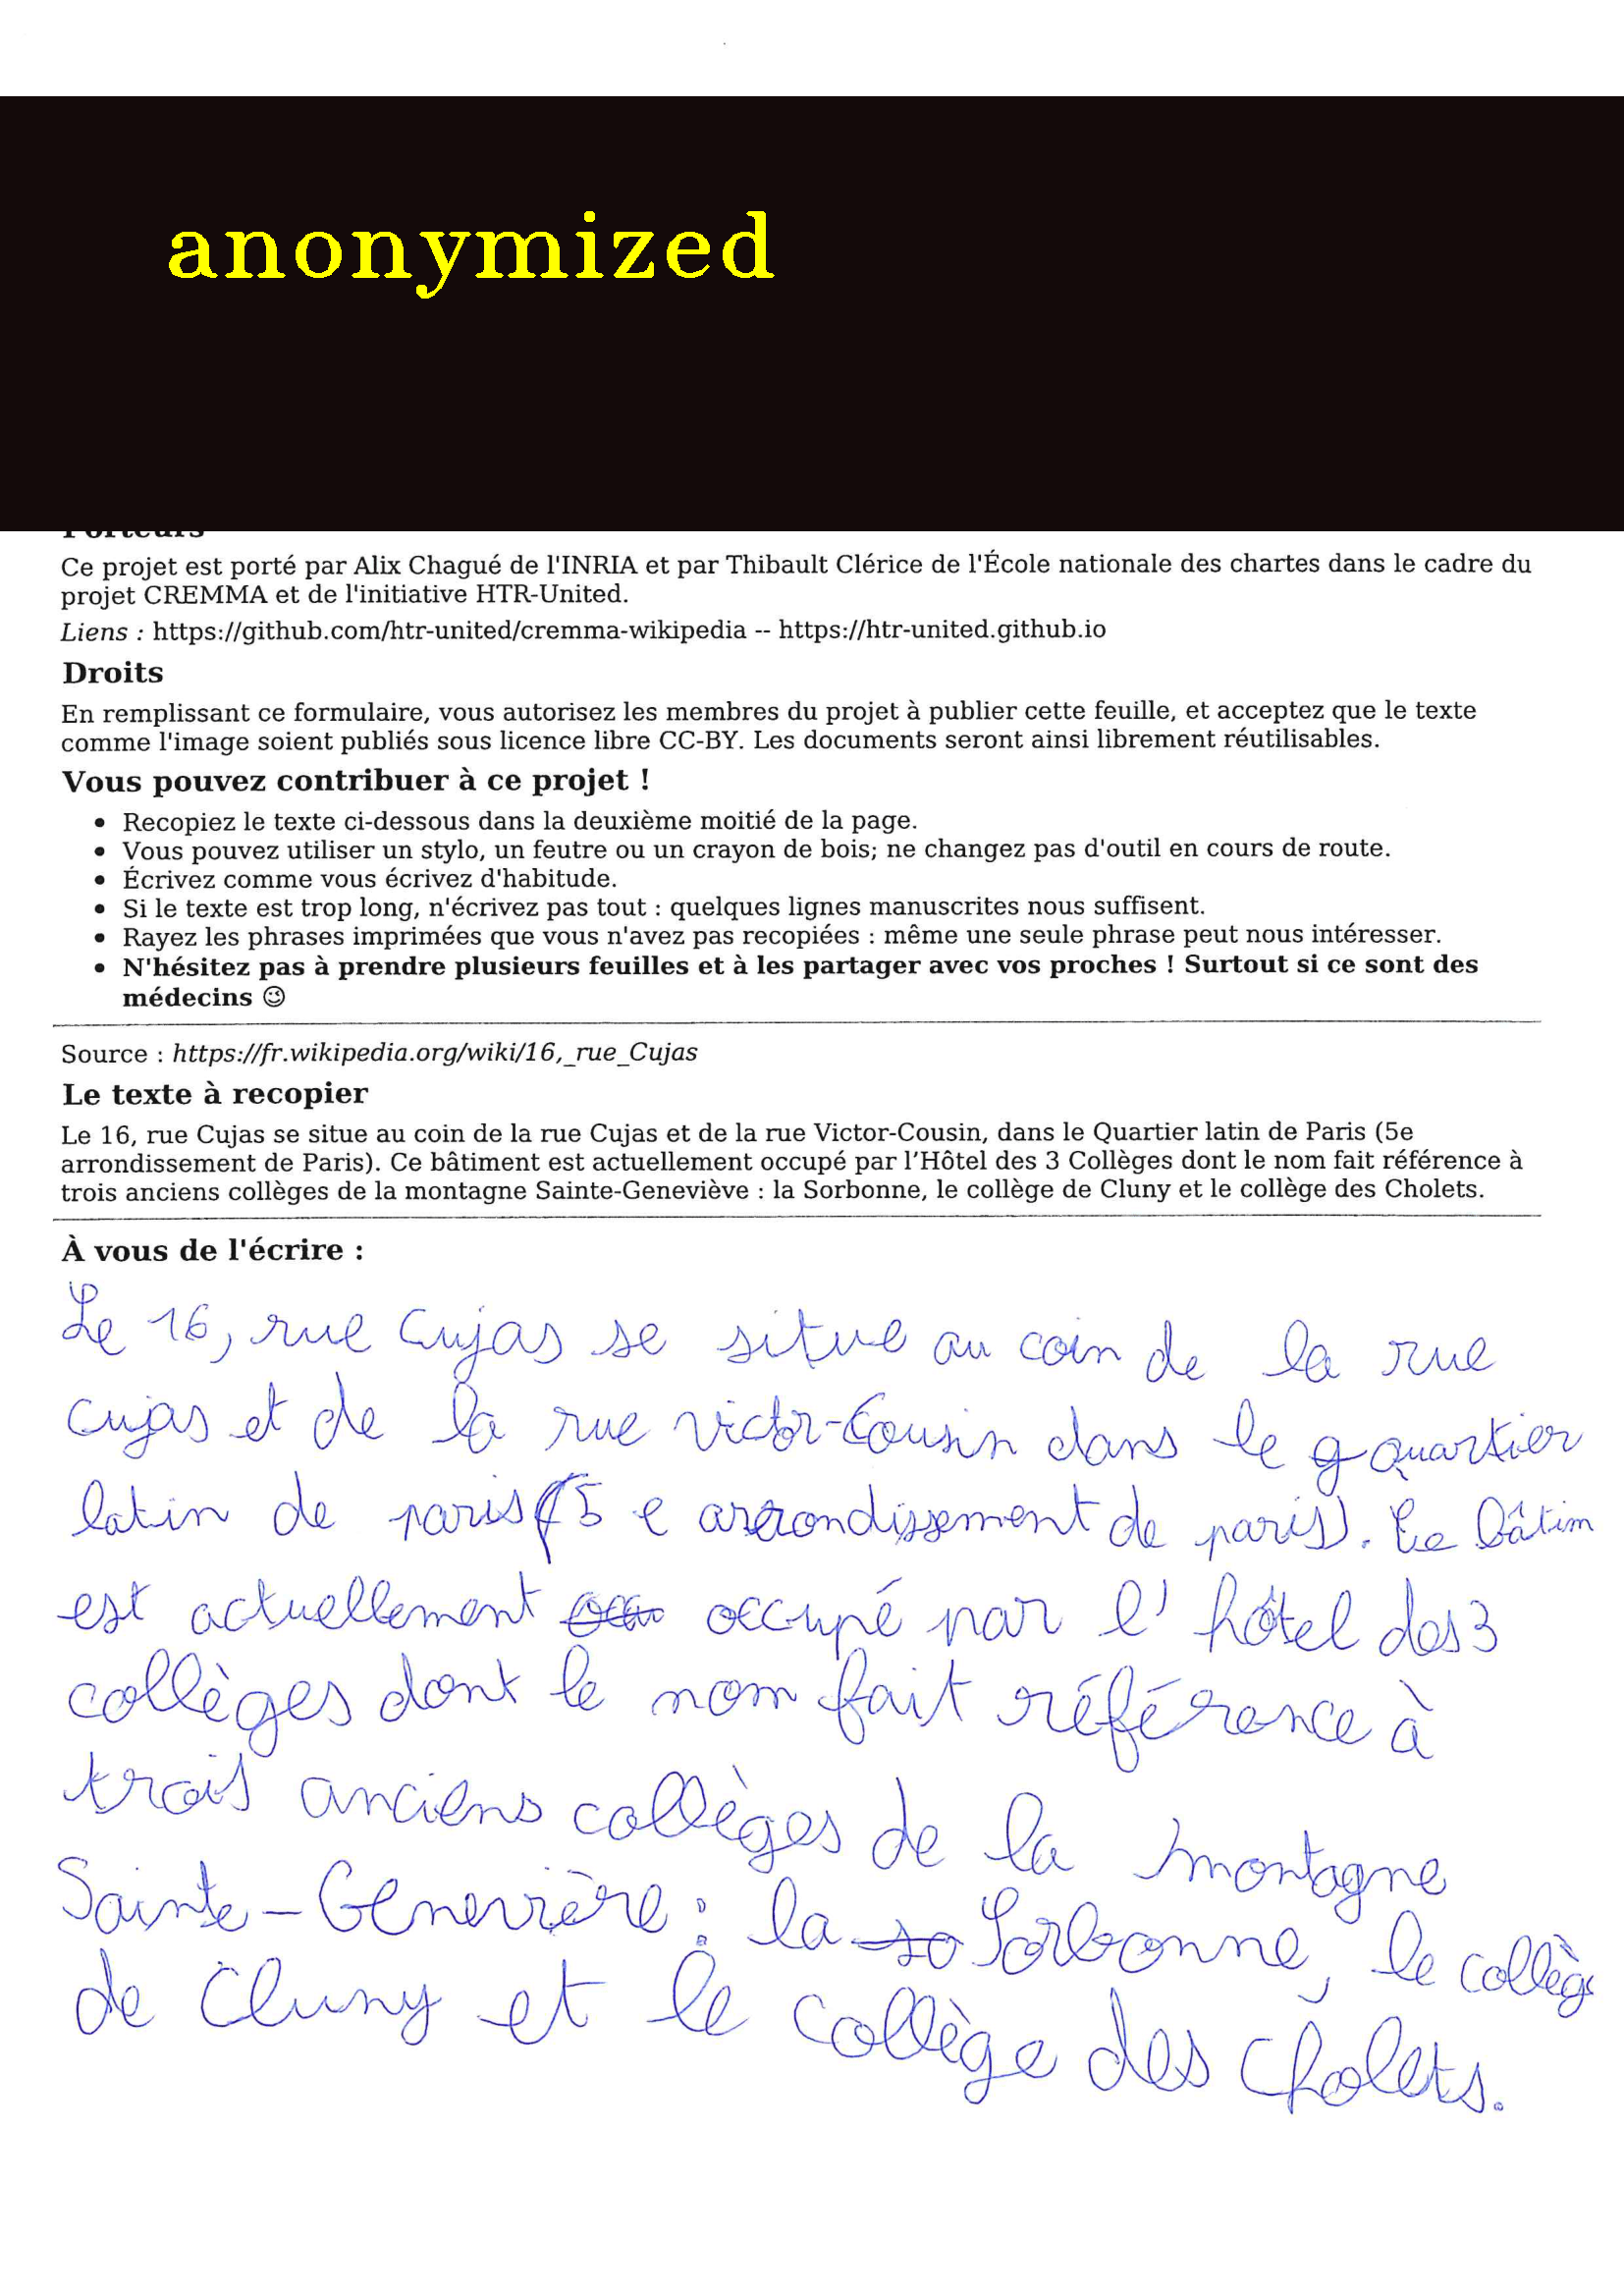 anonymized
Porteurs
Ce projet est porté par Alix Chagué de l'INRIA et par Thibault Clérice de l'École nationale des chartes dans le cadre du
projet CREMMA et de l'initiative HTR-United.
Liens : https://github.com/htr-united/cremma-wikipedia -- https://htr-united.github.io
Droits
En remplissant ce formulaire, vous autorisez les membres du projet à publier cette feuille, et acceptez que le texte
comme l'image soient publiés sous licence libre CC-BY. Les documents seront ainsi librement réutilisables.
Vous pouvez contribuer à ce projet !
• Recopiez le texte ci-dessous dans la deuxième moitié de la page.
• Vous pouvez utiliser un stylo, un feutre ou un crayon de bois; ne changez pas d'outil en cours de route.
• Écrivez comme vous écrivez d'habitude.
• Si le texte est trop long, n'écrivez pas tout : quelques lignes manuscrites nous suffisent.
• Rayez les phrases imprimées que vous n'avez pas recopiées : même une seule phrase peut nous intéresser.
• N'hésitez pas à prendre plusieurs feuilles et à les partager avec vos proches ! Surtout si ce sont des
médecins 😉
Source : https://fr.wikipedia.org/wiki/16,_rue_Cujas
Le texte à recopier
Le 16, rue Cujas se situe au coin de la rue Cujas et de la rue Victor-Cousin, dans le Quartier latin de Paris (5e
arrondissement de Paris). Ce bâtiment est actuellement occupé par l’Hôtel des 3 Collèges dont le nom fait référence à
trois anciens collèges de la montagne Sainte-Geneviève : la Sorbonne, le collège de Cluny et le collège des Cholets.
À vous de l'écrire :
Le 16, rue Cujas se situe au coin de la rue
Cujas et de la rue victor-Cousin dans le q Quartier
latin de paris (5 e arrondissement de paris). Ce bâtim
est actuellement occupé par l' hôtel des 3
collèges dont le nom fait référence à
trois anciens collèges de la montagne
Sainte-Genevière : la so Sorbonne, le collège
de Cluny et le collège des Cholets.